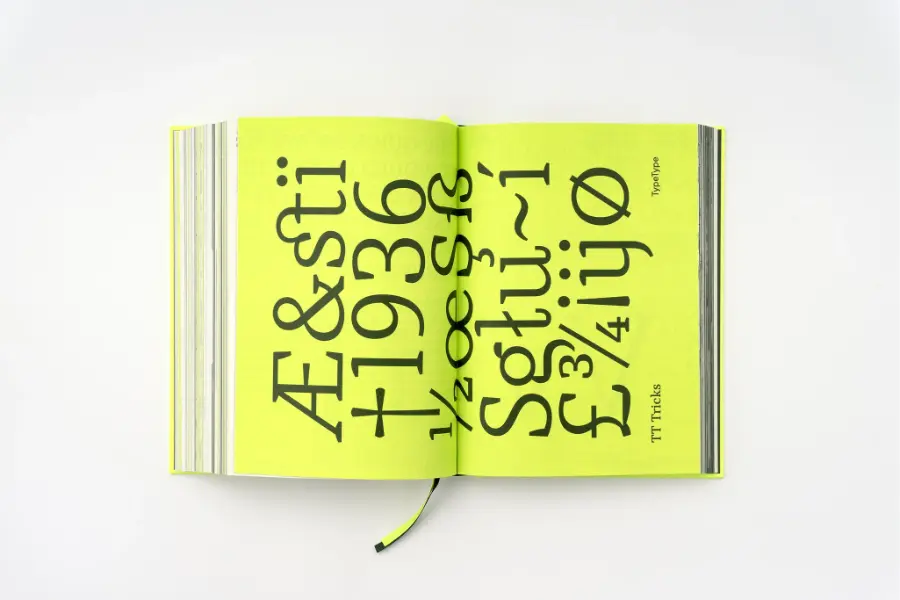 Æ&stï
†1936
½œŞß
Sgłu~í
£¾¡ijØ
TT Tricks
TypeType